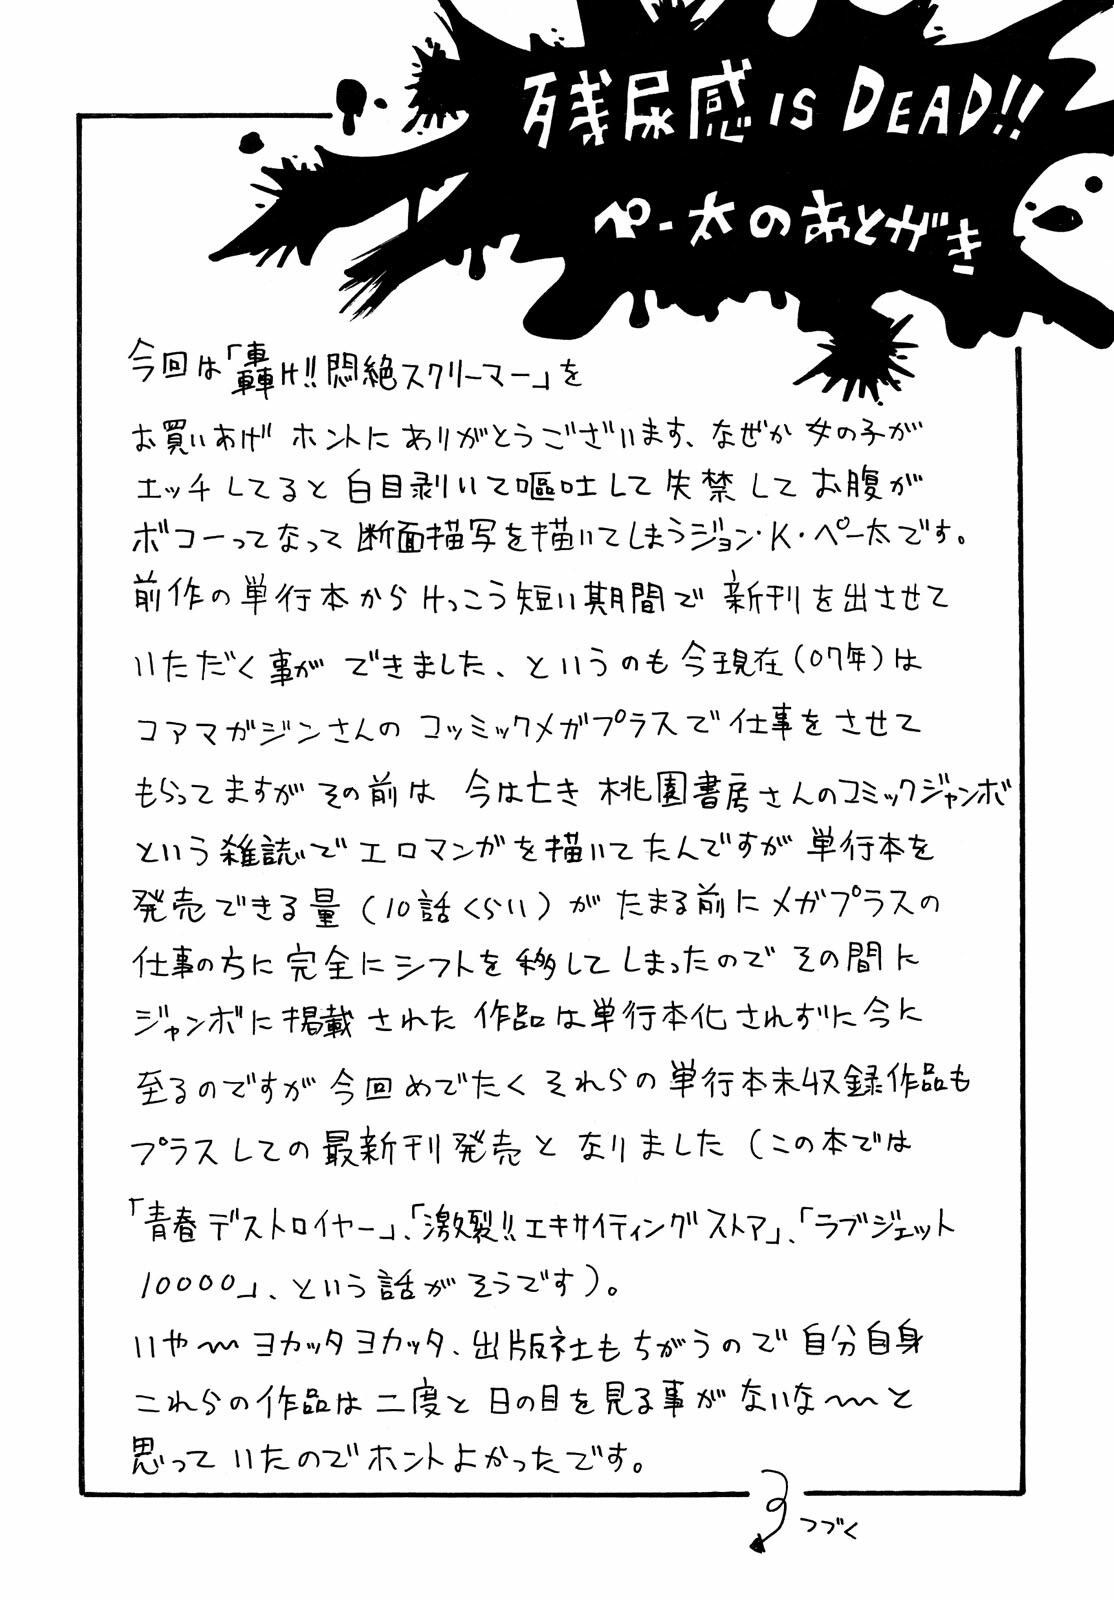 残尿感 IS DEAD!!
ペー太のあとがき
今回は「轟け!!悶絶スクリーマー」を
お買いあげ ホントに ありがとうございます、なぜか 女の子が
エッチしてると 白目剥いて嘔吐して 失禁して お腹が
ボコーってなって 断面描写を描いてしまうジョン・K・ペー太です。
前作の単行本から けっこう短い期間で 新刊を出させて
いただく事が できました、というのも 今現在(07年)は
コアマガジンさんの コッミックメガプラスで 仕事をさせて
もらってますが その前は 今は亡き 桃園書房さんのコミックジャンボ
という雑誌で エロマンガを描いてたんですが 単行本を
発売できる量 (10話くらい) が たまる前に メガプラスの
仕事の方に 完全に シフトを移してしまったので その間に
ジャンボに 掲載 された 作品は単行本化されずに 今に
至るのですが 今回めでたく それらの 単行本未収録作品も
プラスしての 最新刊発売と なりました (この本では
「青春デストロイヤー」、「激裂!!エキサイティングストア」、「ラブジェット
10000」、という話がそうです)。
いや〜 ヨカッタヨカッタ、出版社もちがうので 自分自身
これらの作品は 二度と 日の目を見る事が ないな〜と
思って いたのでホントよかったです。
つづく